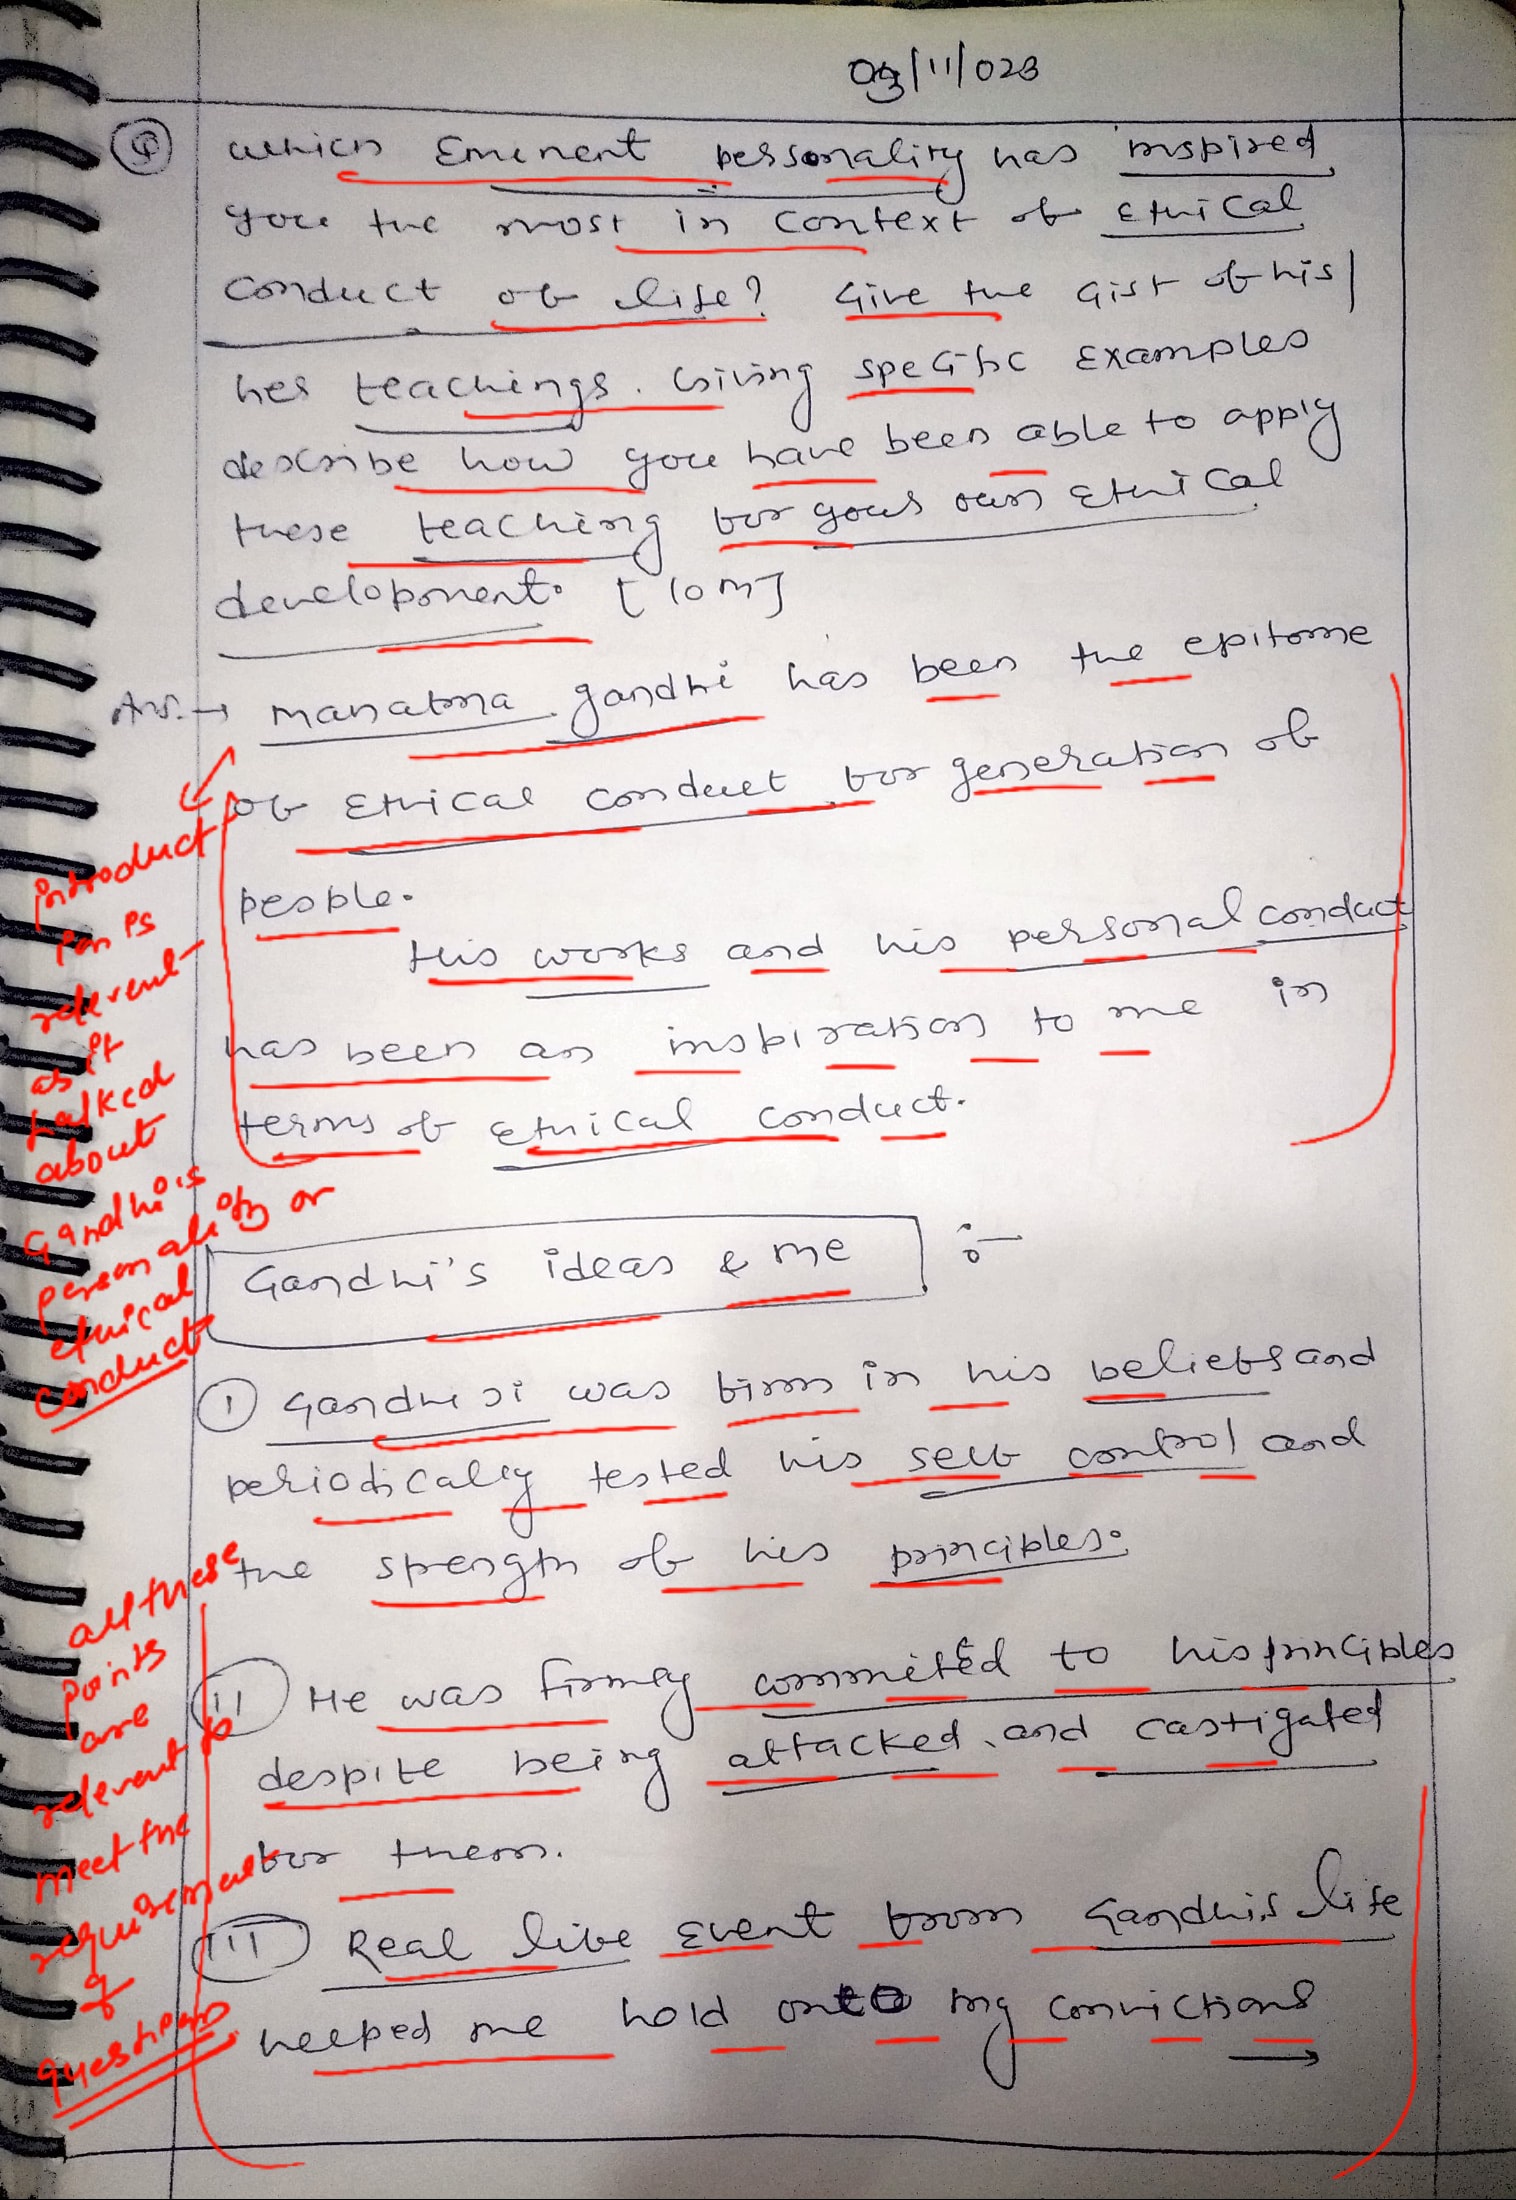 03/11/023
Q which Eminent personality has inspired
you the most in context of Ethical
conduct of life? Give the Gist of his/
her teachings. Giving specific Examples
describe how you have been able to apply
these teaching for your own Ethical
development. [10m]
Ans.→ Mahatma gandhi has been the epitome
of Ethical conduct for generation of
people.
His works and his personal conduct
has been an inspiration to me in
terms of Ethical conduct.
introduct
ion is
relevent
as it
talked
about
Gandhi's
personality or
ethical
conduct
Gandhi's ideas & me :-
(I) Gandhi ji was firm in his beliefs and
periodically tested his self control and
the strength of his principles.
(II) He was firmly commited to his principles
despite being attacked and castigated
for them.
(III) Real life Event from Gandhi's life
helped me hold onto my convictions →
all these
points
are
relevent to
meet the
requirement
of
question